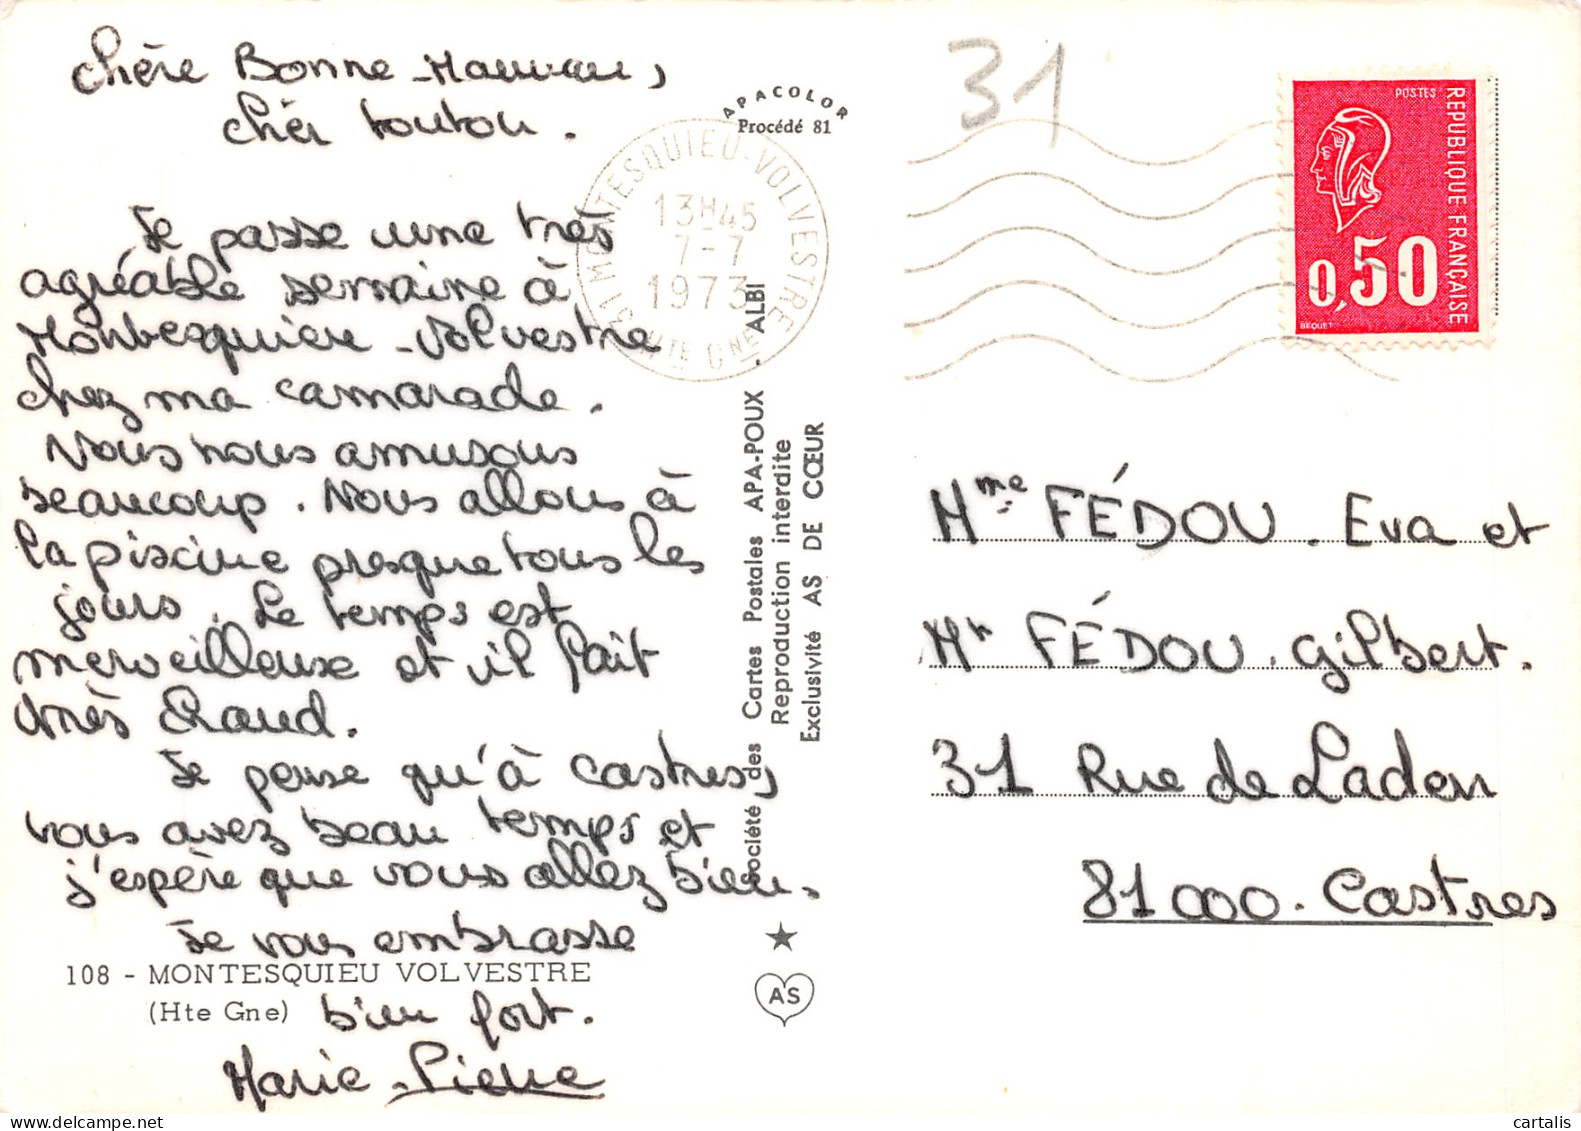 Chère Bonne-Maman,
Chér toutou.
Je passe une très
agréable semaine à
Montesquieu-Volvestre
chez ma camarade.
Nous nous amusons
beaucoup. Nous allons à
la piscine presque tous les
jours. Le temps est
merveilleuse et il fait
très chaud.
Je pense qu'à Castres,
vous avez beau temps et
j'espère que vous allez bien.
Je vous embrasse
108 - MONTESQUIEU VOLVESTRE
(Hte Gne)
bien fort.
Marie-Pierre
APACOLOR
Procédé 81
31 MONTESQUIEU-VOLVESTRE
HTE GNE
13H45
7-7
1973
Société des Cartes Postales APA-POUX - ALBI
Reproduction interdite
Exclusivité AS DE CŒUR
AS
31
POSTES
REPUBLIQUE FRANÇAISE
0,50
BEQUET
Mme FÉDOU. Eva et
Mr FÉDOU. Gilbert.
31 Rue de Laden
81000. Castres
cartalis